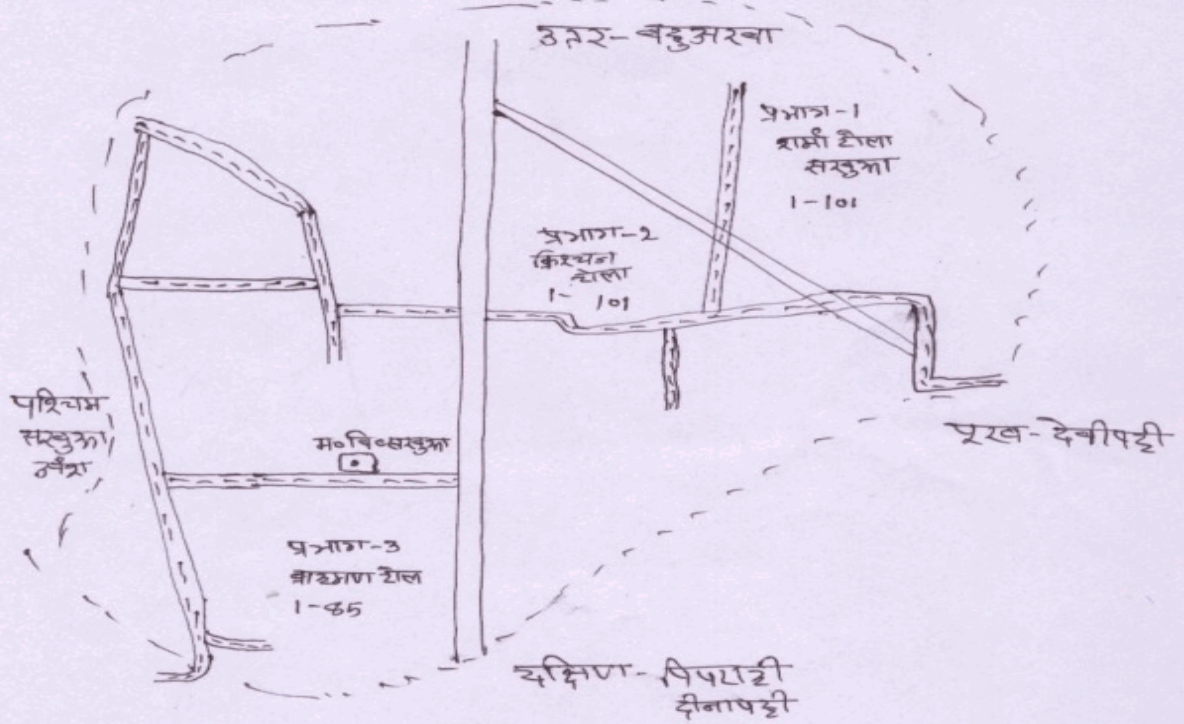 उत्तर-बहुअरवा
प्रभाग-1
शर्मा टोला
सखुआ
1-101
प्रभाग-2
क्रिश्चन
टोला
1- 101
पश्चिम
सखुआ
म० वि० सखुआ
पूरब-देवीपट्टी
प्रभाग-3
ब्राह्मण टोल
1-85
दक्षिण-पिपराही
दीनापट्टी